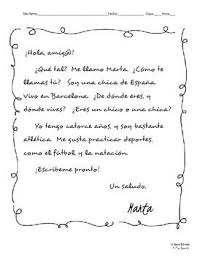 ¡Hola amig@!
¿Qué tal? Me llamo Marta. ¿Cómo te
llamas tú? Soy una chica de España.
Vivo en Barcelona. ¿De dónde eres, y
dónde vives? ¿Eres un chico o una chica?
Yo tengo catorce años, y soy bastante
atlética. Me gusta practicar deportes,
como el fútbol y la natación.
¡Escríbeme pronto!
Un saludo,
Marta